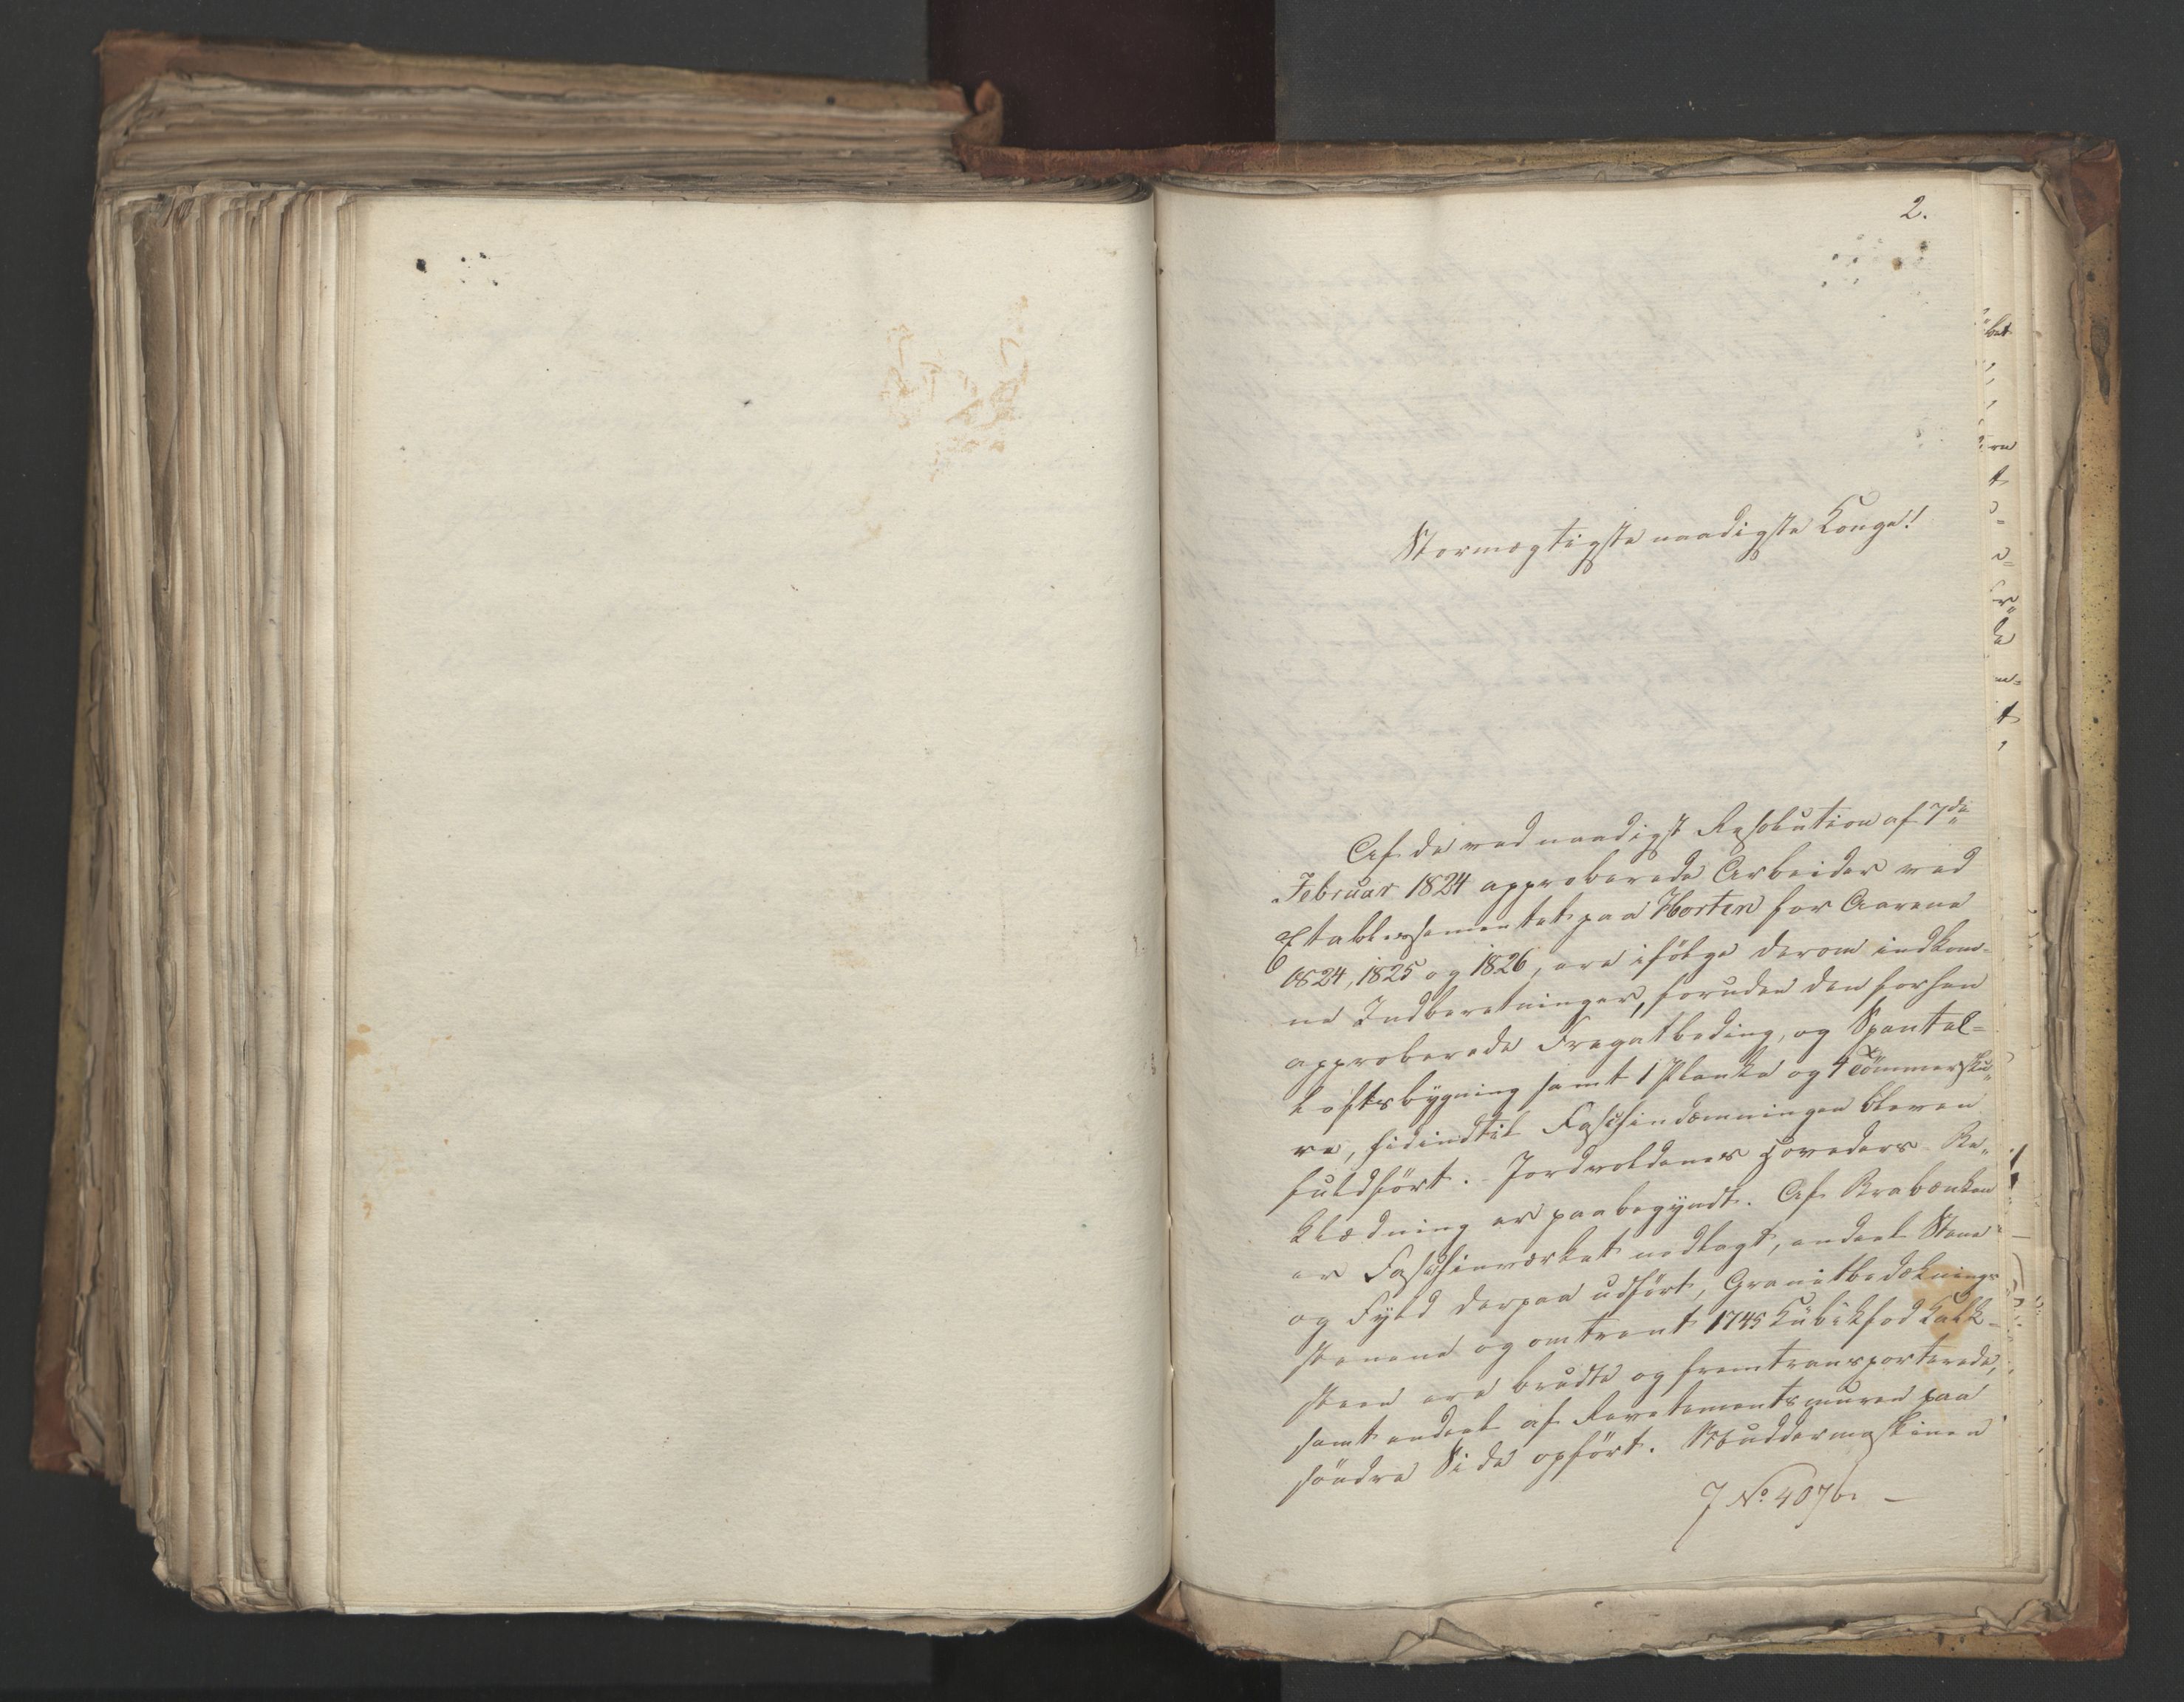 2.
Stormægtigste naadigste Konge!
Af de ved naadigst Resolution af 7de
Februar 1824 approberede Arbeider ved
Etablissementet paa Horten for Aarene
1824, 1825 og 1826, ere ifölge derom indkom-
ne Indberetninger, foruden den forhen
approberede Fregatbeding, og Spantel-
loftsbygning samt 1 Planke og 4 Tömmersku-
re, hidindtil Faschindæmningen bleven
fuldfört. Jordvoldenes Hoveders Be-
klædning er paabegyndt. Af Krabænken
er Faschinværket nedlagt, endeel Steen
og Fyld derpaa udfört, Granitbedæknings
stenene og omtrent 1745 Kubikfod Kalk-
steen ere brudte og fremtransporterede,
samt endeel af Revetementsmuren paa
söndre Side opfört. Muddermaskinen
J No. 407